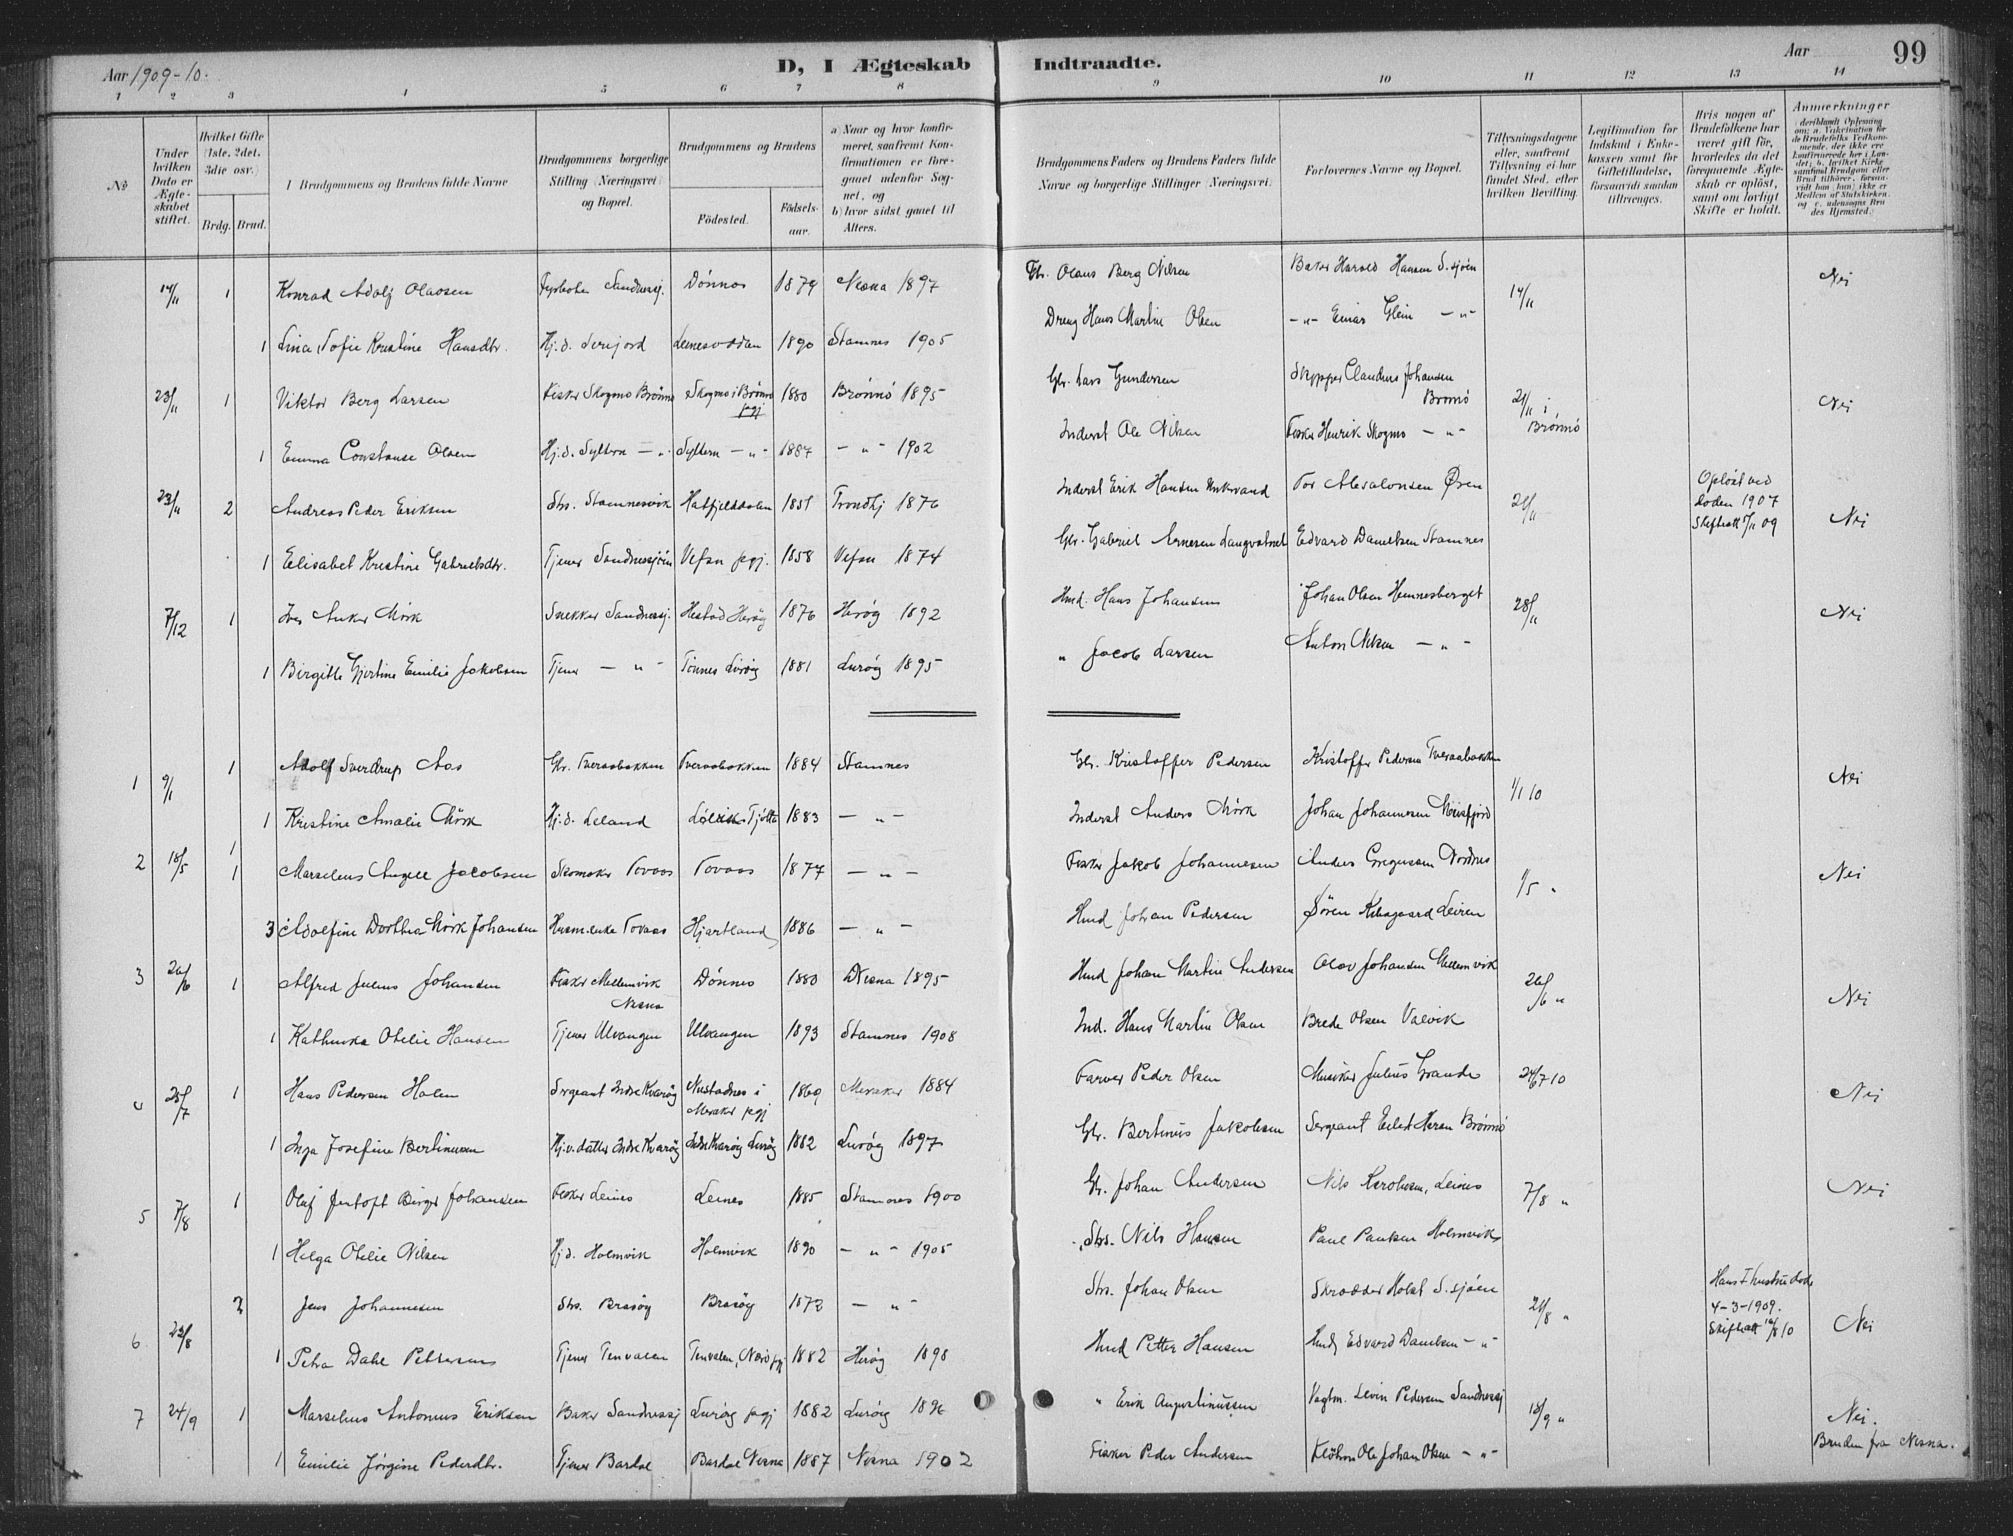 Aar 1909-10.
D, I Ægteskab Indtraadte.
Aar
99
1 2 3 4 5 6 7 8 9 10 11 12 13 14
No
Under hvilken Dato er Ægteskabet stiftet.
Hvilket Gifte (1ste, 2det, 3die osv.)
Brdg. Brud.
Brudgommens og Brudens fulde Navne
Brudgommens borgerlige Stilling (Næringsvei) og Bopæl.
Brudgommens og Brudens
Fødested.
Fødsels-aar.
a) Naar og hvor konfirmeret, saafremt Konfirmationen er foregaaet udenfor Sognet, og
b) hvor sidst gaaet til Alters.
Brudgommens Faders og Brudens Faders fulde Navne og borgerlige Stillinger (Næringsvei)
Forlovernes Navne og Bopæl.
Tillysningsdagene eller, saafremt Tillysning ei har fundet Sted, efter hvilken Bevilling.
Legitimation for Indskud i Enkekassen samt for Giftetilladelse, forsaavidt saadan tiltrænges.
Hvis nogen af Brudefolkene har været gift før, hvorledes da det foregaaende Ægteskab er opløst, samt om lovligt Skifte er holdt.
Anmærkninger
14/11 1 Konrad Adolf Olaosen Sandnessj. Dønnes 1879 Nesna 1897 Gbr. Olaus Berg Nilsen Baker Harald Hansen S.sjøen 14/11 Nei
1 Lina Sofie Kristine Hansdtr. Hj.d. 1890 Stamnes 1905 Dreng Hans Martin Olsen -"- Einar Glein -"-
23/11 1 Viktor Berg Larsen Fisker Skogmo Brønnø Skogmo i Brønnø pgj 1880 Brønnø 1895 Gbr. Lars Gundersen Skipper Claudius Johansen Brønnø 21/11 i Brønnø Nei
1 Emma Constanse Olsen Hj.d. Syltern -"- Syltern -"- 1887 -"- 1902 Inderst Ole Nilsen Fisker Henrik Skogmo -"-
23/11 2 Andreas Peder Eriksen Strs. Stamnesvik Hatfjelddalen 1851 Trondhj 1876 Inderst Erik Hansen Unkervand Tor Absalonsen Øren 21/11 Opløst ved døden 1907 Skifteatt 5/11 09 Nei
1 Elisabet Kristine Gabrielsdtr. Tjener Sandnessjøen Vefsn pgj. 1858 Vefsn 1874 Gbr. Gabriel Arnesen Langvatnet Edvard Danielsen Stamnes
7/12 1 Iver Anker Mørk Snekker Sandnessj. Hestad Herøy 1876 Herøy 1892 Hmd. Hans Johansen Johan Olsen Hemnesberget 28/11 Nei
1 Birgitte Hjertine Emilie Jakobsen Tjener -"- Tonnes Lurøy 1881 Lurøy 1895 " Jacob Larsen Anton Nilsen -"-
1 9/1 1 Adolf Sverdrup Aas Gbr. Tveraabakken Tveraabakken 1884 Stamnes Gbr. Kristoffer Pedersen Kristoffer Pedersen Tveraabakken 1/1 10 Nei
1 Kristine Amalie Mørk Hj.d. Leland Tjøtta 1883 -"- Inderst Anders Mørk Johan Johannesen Meisfjord
2 18/5 1 1 Marselius Angell Jacobsen Skomaker Tovaas Tovaas 1874 -"- Fisker Jakob Johannesen Anders Gregussen Nordnes 1/5 " Nei
3 Adolfine Dorthea Mørk Johansen Husm.enke Tovaas Hjartland 1886 -"- Hmd Johan Pedersen Søren Kibsgaard Leiren
3 26/6 1 Alfred Julius Johansen Fisker Mellemvik Nesna Dønnes 1880 Nesna 1895 Hmd Johan Martin Andersen Olav Johansen Mellemvik 26/6 " Nei
1 Kathinka Otelie Hansen Tjener Ulvangen Ulvangen 1893 Stamnes 1908 Ind. Hans Martin Olsen Brede Olsen Valvik
4 25/7 1 Hans Pedersen Holen Sergeant Indre Kvarøy Nustadnes i Meraker pgj 1869 Meraker 1884 Farver Peder Olsen Musiker Julius Grande 24/7 10 Nei
1 Inga Josefine Bertinusen Hj.v. datter Indre Kvarøy Indre Kvarøy Lurøy 1882 Lurøy 1897 Gbr. Bertinus Jakobsen Sergeant Brønnø
5 7/8 1 Olaf Jentoft Birger Johansen Fisker Leines Leines 1885 Stamnes 1900 Gbr. Johan Andersen Nils Karolusen, Leines 7/8 " Nei
1 Helga Otelie Nilsen Hj.d. Holmvik Holmvik 1890 -"- 1905 Strs. Nils Hansen Paul Paulsen Holmvik
6 23/8 2 Jens Johannesen Strs. Brasøy Brasøy 1872 -"- Strs. Johan Olsen Skrædder Holst S.sjøen 21/8 " Hans 1 hustru døde 4-3-1909. Skifteatt 12/8 10 Nei
1 Petra Dahl Pettersen Tjener Tenvalen Tenvalen, Nord pgj. 1882 Herøy 1898 Hmd Petter Hansen Hmd Edvard Danielsen -"-
7 24/9 1 Marselius Antonius Eriksen Baker Sandnessj Lurøy pgj 1882 Lurøy 1896 " Erik Augustinussen Vagtm. Levin Pedersen Sandnessj 18/9 " Nei.
1 Emilie Jørgine Pedersdtr. Tjener Bardal Bardal Nesna 1887 Nesna 1902 Fisker Peder Andersen Ole Johan Olsen -"- Bruden fra Nesna.